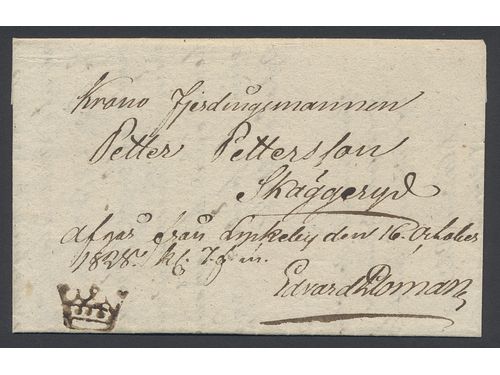 Krono Fjerdingsmannen
Petter Pettersson
Skäggeryd
afgår från Lyckeby den 16. October
1828. kl. 7. f. m.
Edvard Roman